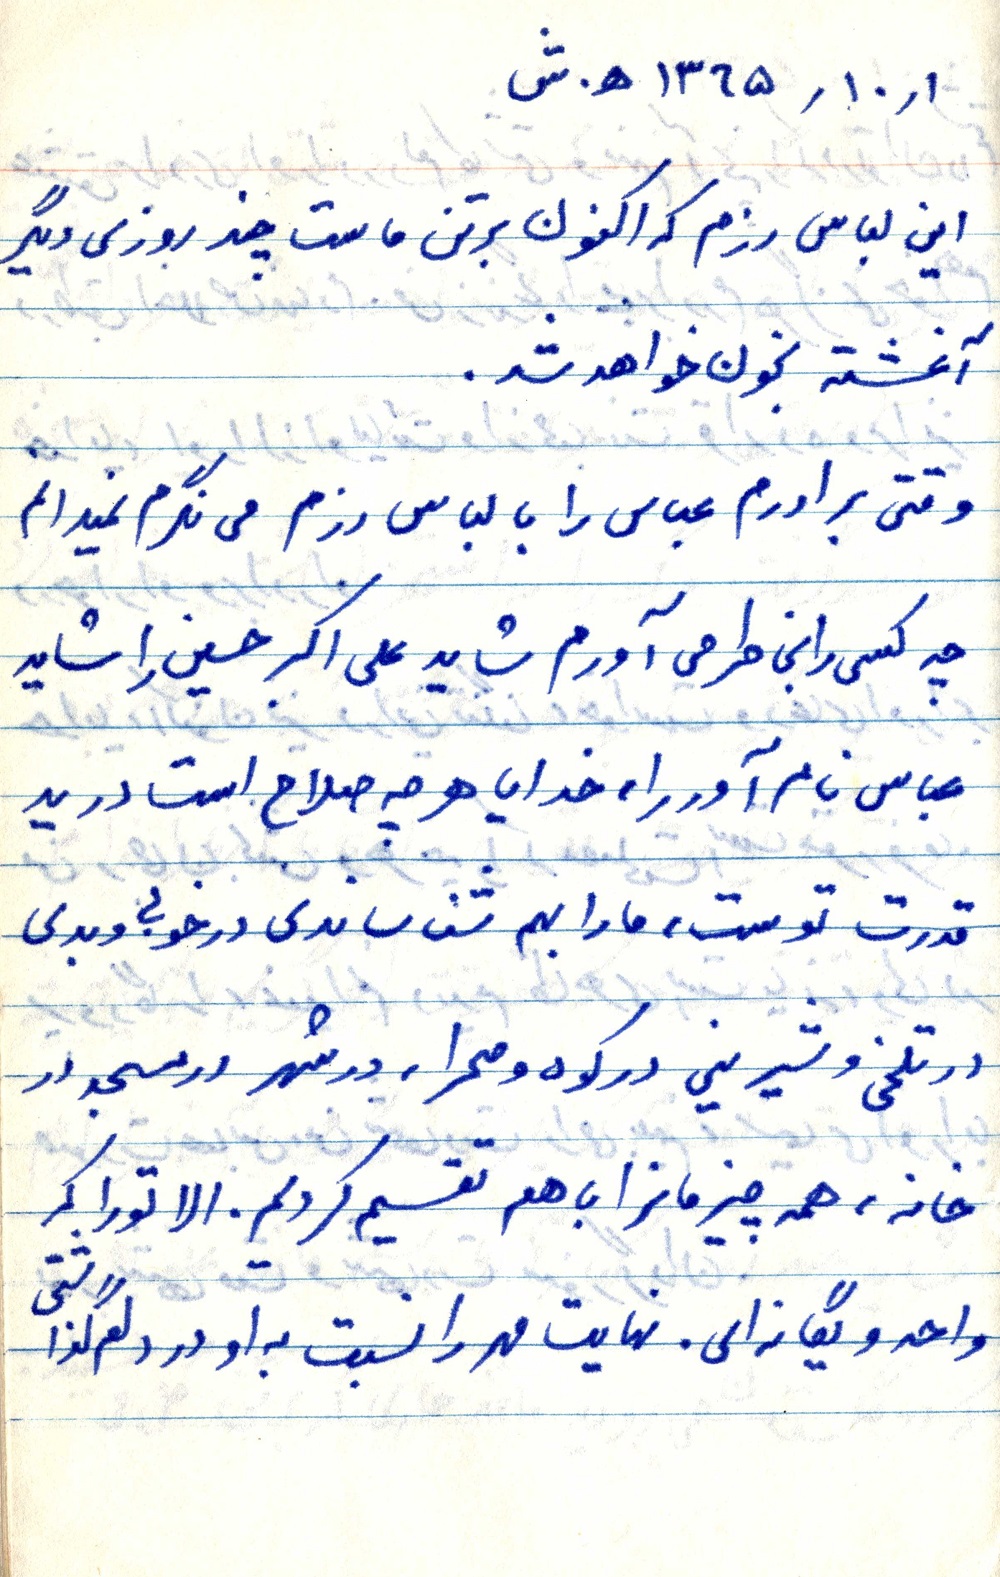 ۱ر۱۰ر ۱۳۶۵ ه.ش
این لباس رزم که اکنون برتن ماست چند روزی دیگر
آغشته بخون خواهد شد.
وقتی برادرم عباس را با لباس رزم می نگرم نمیدانم
چه کسی را بخاطر می آورم شاید علی اکبر حسین را شاید
عباس نام آور را، خدایا هر چه صلاح است در ید
قدرت توست، ما را بهم شناساندی در خوبی و بدی
در تلخی و شیرینی در کوه و صحرا، در شهر در مسجد در
خانه، همه چیزمانرا با هم تقسیم کردیم. الا تو را که
واحد و یگانه ای. نهایت مهر را نسبت به او در دلم گذاشتی